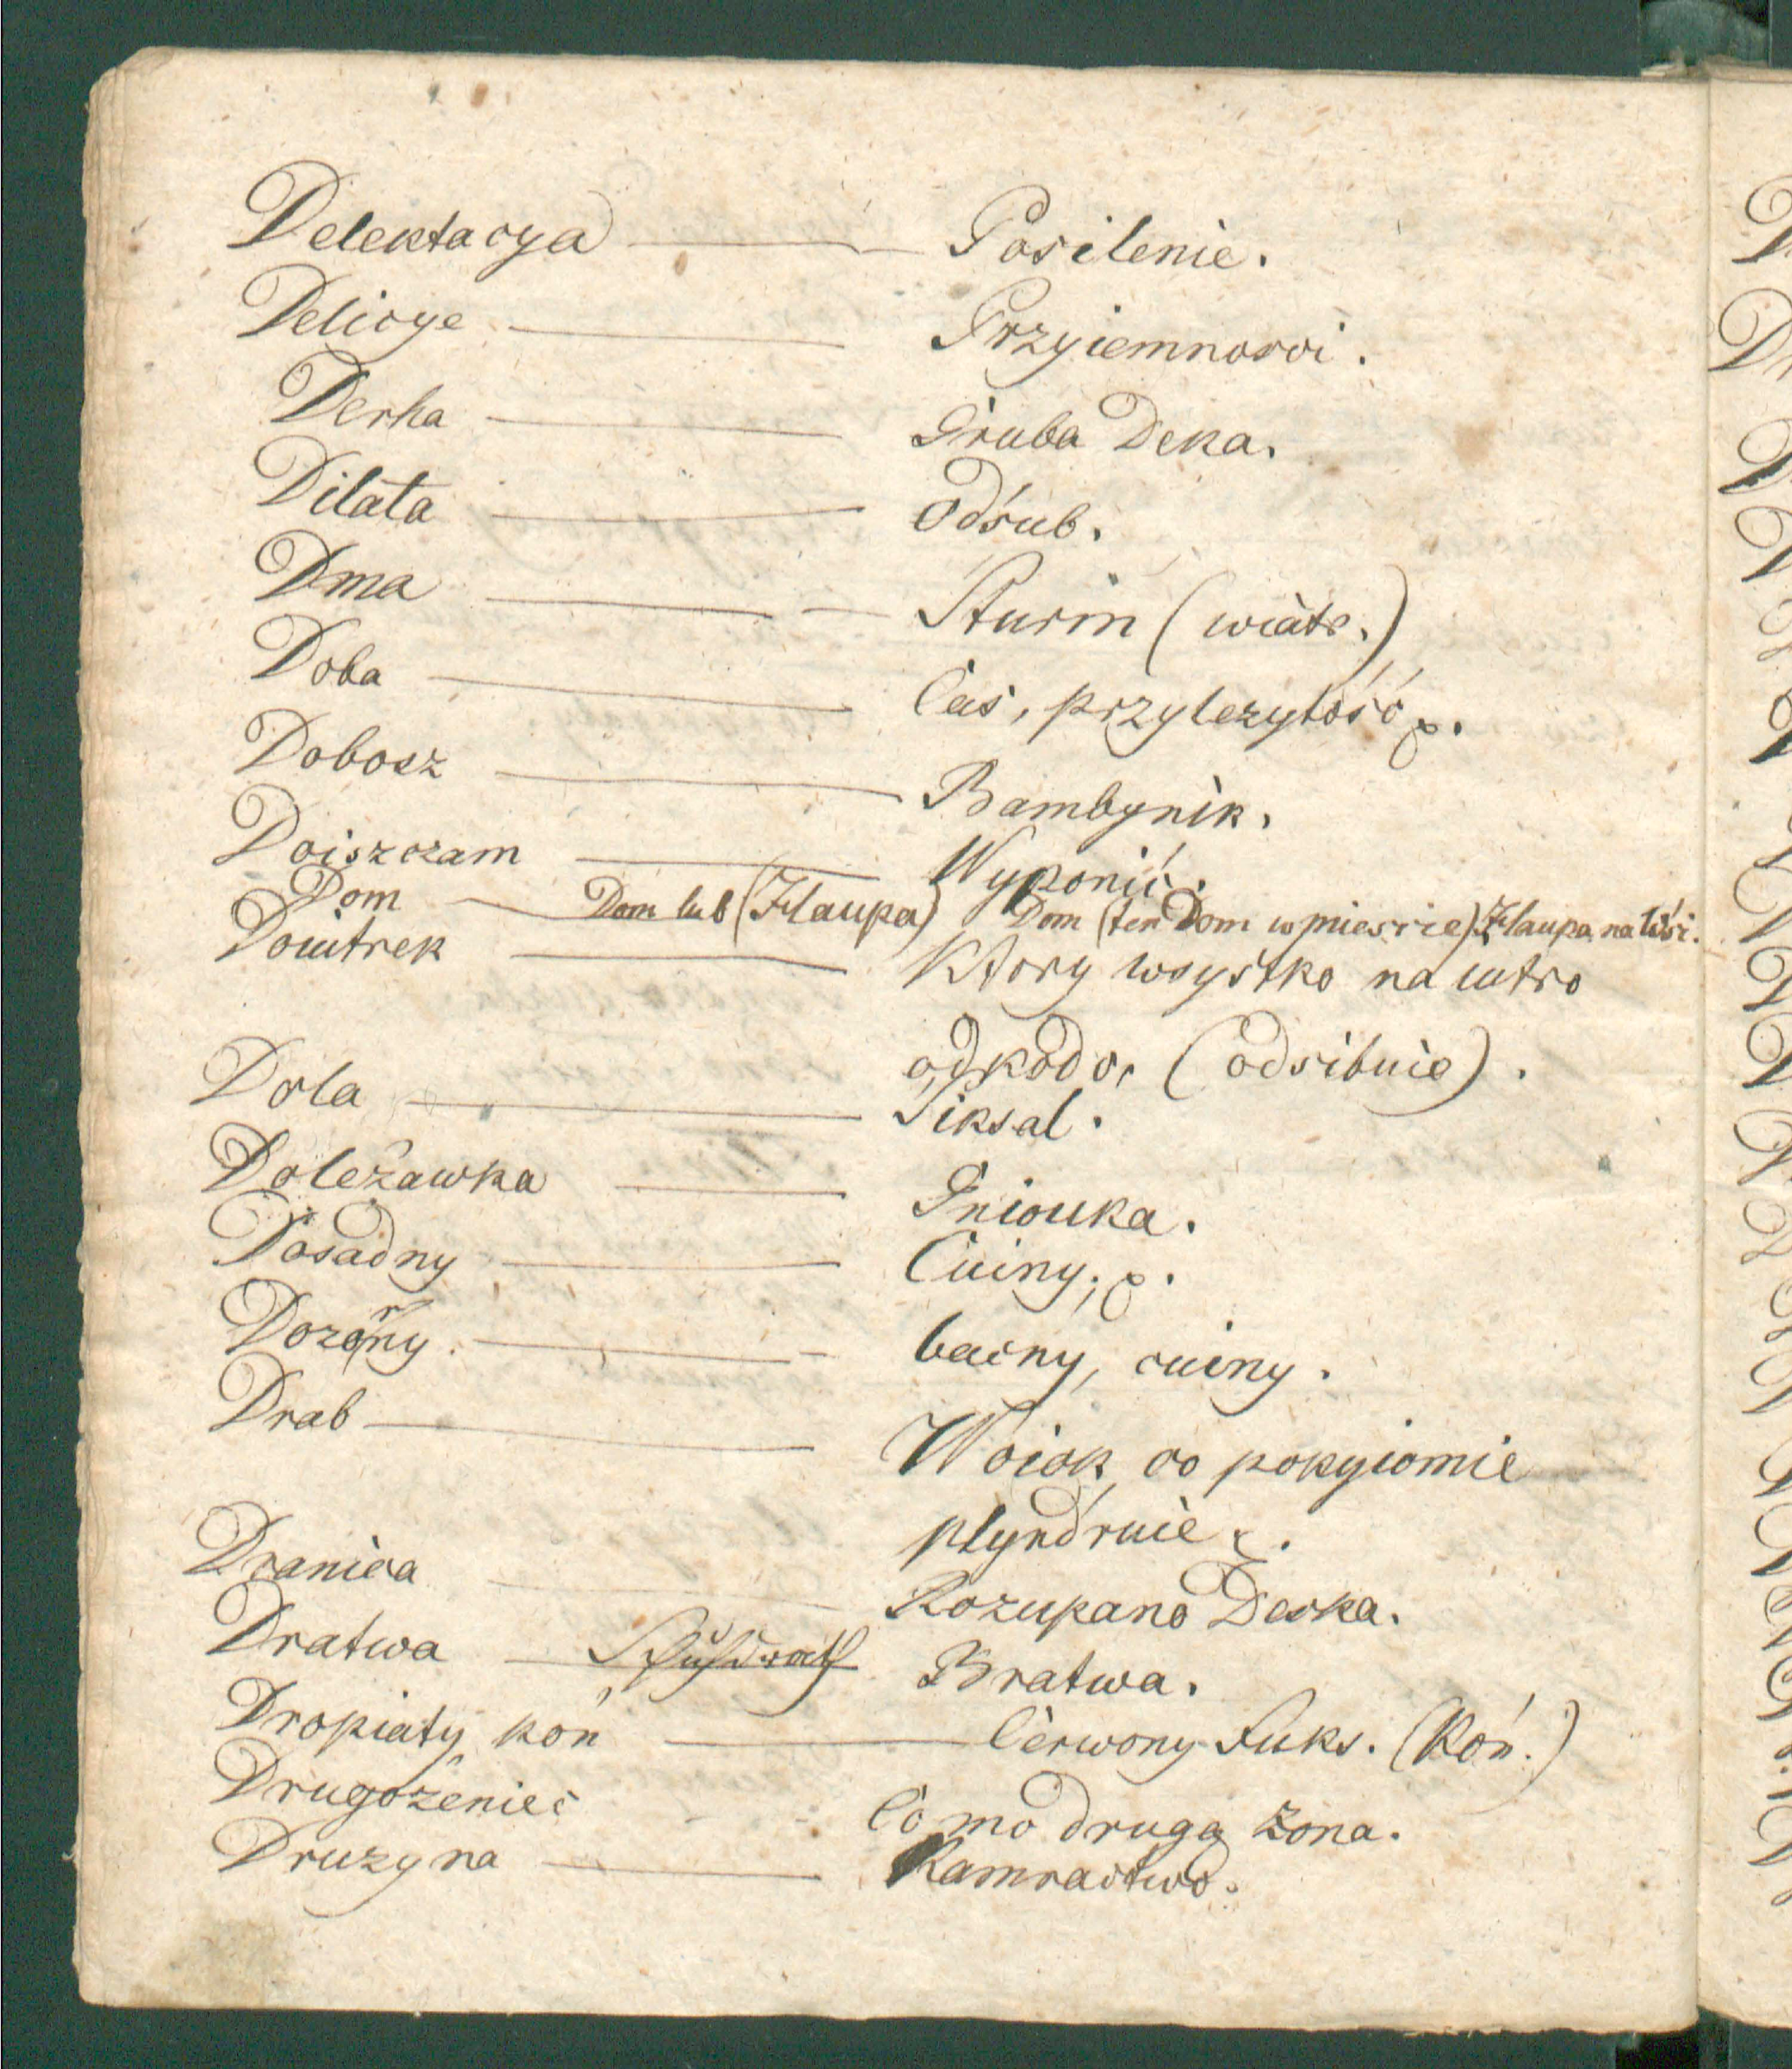 Delektacya — Posilenie.
Delicye — Przyiemnosci.
Derha — Gruba Deka.
Dilata — Odśub.
Dma — Sturm (wiatr.)
Doba — Cas, przylezytość &.
Dobosz — Bambynik.
Doiszczam — Wyponić.
Dom — Dom lub (Hlaupa) Dom (ten Dom w miescie) Hlaupa na Wśi.
Douitrek — Ktory wsystko na iutro
odkodo, (odsibuie).
Dola — Siksal.
Doleżawka — Gniouka.
Dosadny — Cuiny, &.
Dozorny — bacny, cuiny.
Drab — Woiok co pokyiomie
plyndruie &.
Dranica — Rozupano Deska.
Dratwa — Schuhdrath Bratwa.
Dropiaty koń — Cerwony Fuks. (Koń.)
Drugożeniec Co mo drugą żona.
Druzyna — Kamractwo.